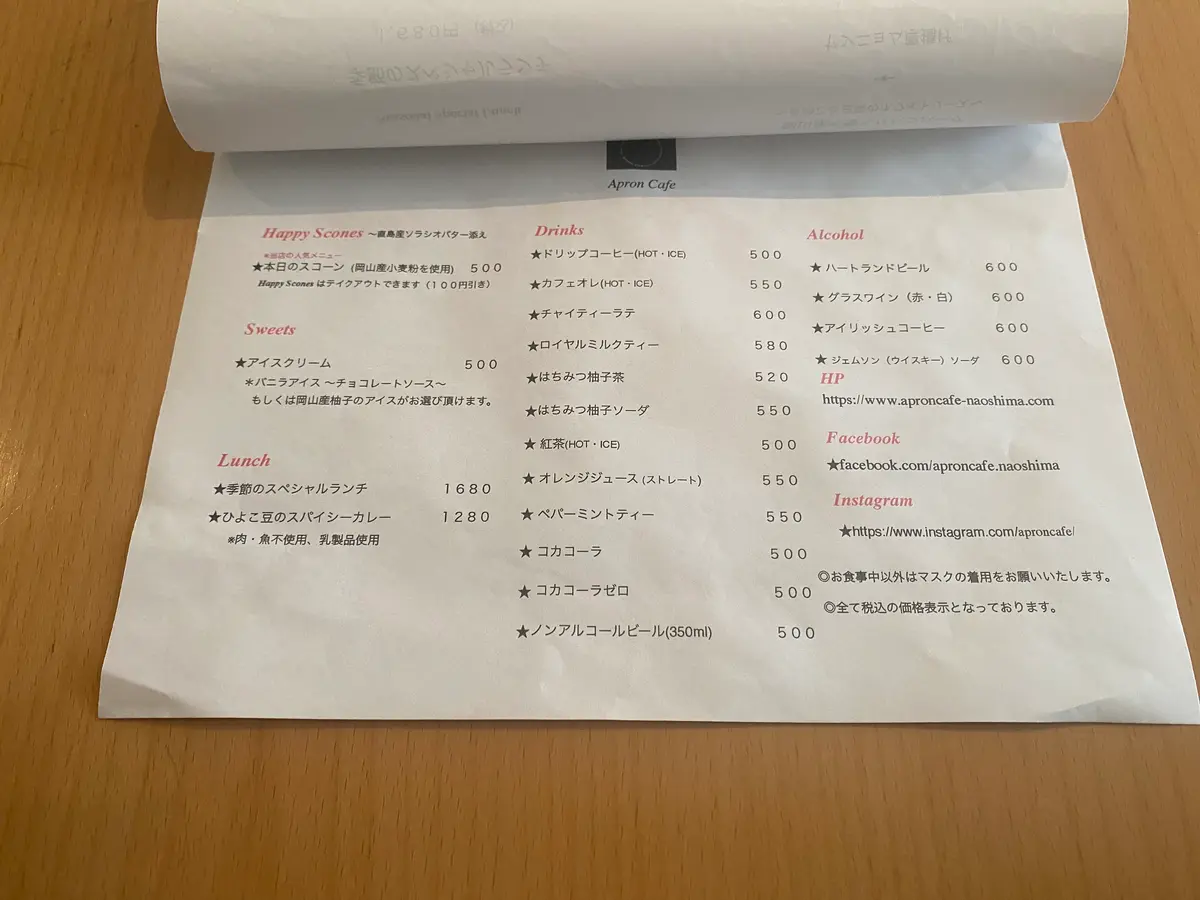 Apron Cafe
Happy Scones ～直島産ソラシオバター添え
*当店の人気メニュー
★本日のスコーン (岡山産小麦粉を使用) 500
Happy Scones はテイクアウトできます（100円引き）
Sweets
★アイスクリーム 500
＊バニラアイス ～チョコレートソース～
もしくは岡山産柚子のアイスがお選び頂けます。
Lunch
★季節のスペシャルランチ 1680
★ひよこ豆のスパイシーカレー 1280
※肉・魚不使用、乳製品使用
Drinks
★ドリップコーヒー(HOT・ICE) 500
★カフェオレ(HOT・ICE) 550
★チャイティーラテ 600
★ロイヤルミルクティー 580
★はちみつ柚子茶 520
★はちみつ柚子ソーダ 550
★ 紅茶(HOT・ICE) 500
★ オレンジジュース (ストレート) 550
★ ペパーミントティー 550
★ コカコーラ 500
★ コカコーラゼロ 500
★ノンアルコールビール(350ml) 500
Alcohol
★ ハートランドビール 600
★ グラスワイン（赤・白） 600
★アイリッシュコーヒー 600
★ ジェムソン（ウイスキー）ソーダ 600
HP
https://www.aproncafe-naoshima.com
Facebook
★facebook.com/aproncafe.naoshima
Instagram
★https://www.instagram.com/aproncafe/
◎お食事中以外はマスクの着用をお願いいたします。
◎全て税込の価格表示となっております。